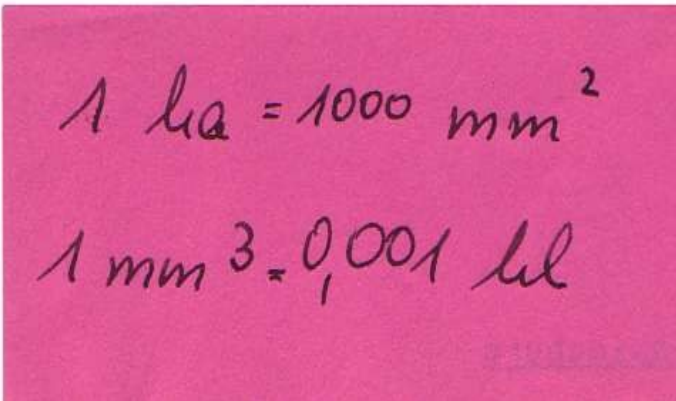 1 ha = 1000 mm²
1 mm³ = 0,001 hl